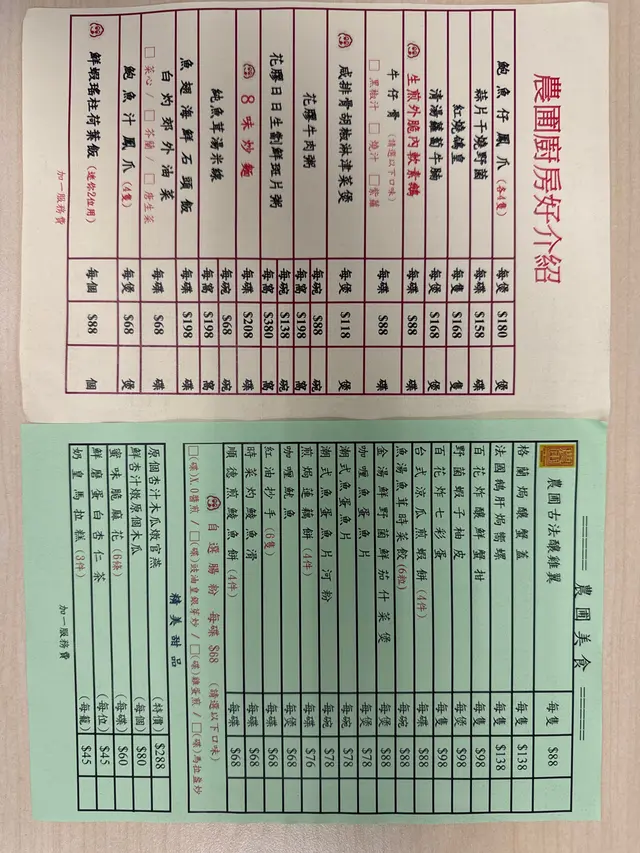 農圃廚房好介紹
鮑魚仔鳳爪(各4隻) 每煲 $180 煲
蒜片干燒野菌 每碟 $158 碟
紅燒鴿皇 每隻 $168 隻
清湯蘿蔔牛腩 每煲 $168 煲
生煎外脆內軟素鵝 每碟 $88 碟
牛仔骨(請選以下口味) 每碟 $88 碟
□黑椒汁 □燒汁 □紫蘿
咸排骨胡椒淋津菜煲 每煲 $118 煲
花膠牛肉粥 每碗 $88 碗
每窩 $198 窩
花膠日日生劏鮮斑片粥 每碗 $138 碗
每窩 $380 窩
8味炒麵 每碟 $208 碟
純魚茸湯米線 每碗 $68 碗
每窩 $198 窩
魚翅海鮮石頭飯 每碟 $198 碟
白灼郊外油菜 每碟 $68 碟
□菜心/□芥蘭/□唐生菜
鮑魚汁鳳爪(4隻) 每煲 $68 煲
鮮蝦瑤柱荷葉飯(迷你2位用) 每個 $88 個
加一服務費
農圃美食
農圃古法釀雞翼 每隻 $88
格蘭焗釀蟹蓋 每隻 $138
法國鴨肝焗響螺 每隻 $138
百花炸釀鮮蟹拑 每隻 $98
野菌蝦子柚皮 每煲 $98
百花炸七彩蛋 每隻 $98
台式涼瓜煎蝦餅(4件) 每碟 $88
魚湯魚茸時菜餃(6粒) 每碗 $88
金湯鮮野菌鮮茄什菜煲 每煲 $88
咖喱魚蛋魚片 每煲 $78
潮式魚蛋魚片 每碗 $78
潮式魚蛋魚片河粉 每碗 $78
煎焗蓮藕餅(4件) 每碟 $76
咖喱魷魚 每煲 $68
紅油抄手(6隻) 每碟 $68
時菜灼鯪魚滑 每碟 $68
順德煎鯪魚餅(4件) 每碟 $68
自選腸粉 每碟 $68 (請選以下口味)
□(碟)X.O醬煎/□(碟)豉油皇銀芽炒/□(碟)雞蛋煎/□(碟)馬拉盞炒
精美甜品
原個杏汁木瓜燉官燕 (特價) $288
鮮杏汁燉原個木瓜 (每個) $80
蜜味脆麻花(6條) (每碟) $60
鮮磨蛋白杏仁茶 (每位) $45
奶皇馬拉糕(3件) (每籠) $45
加一服務費